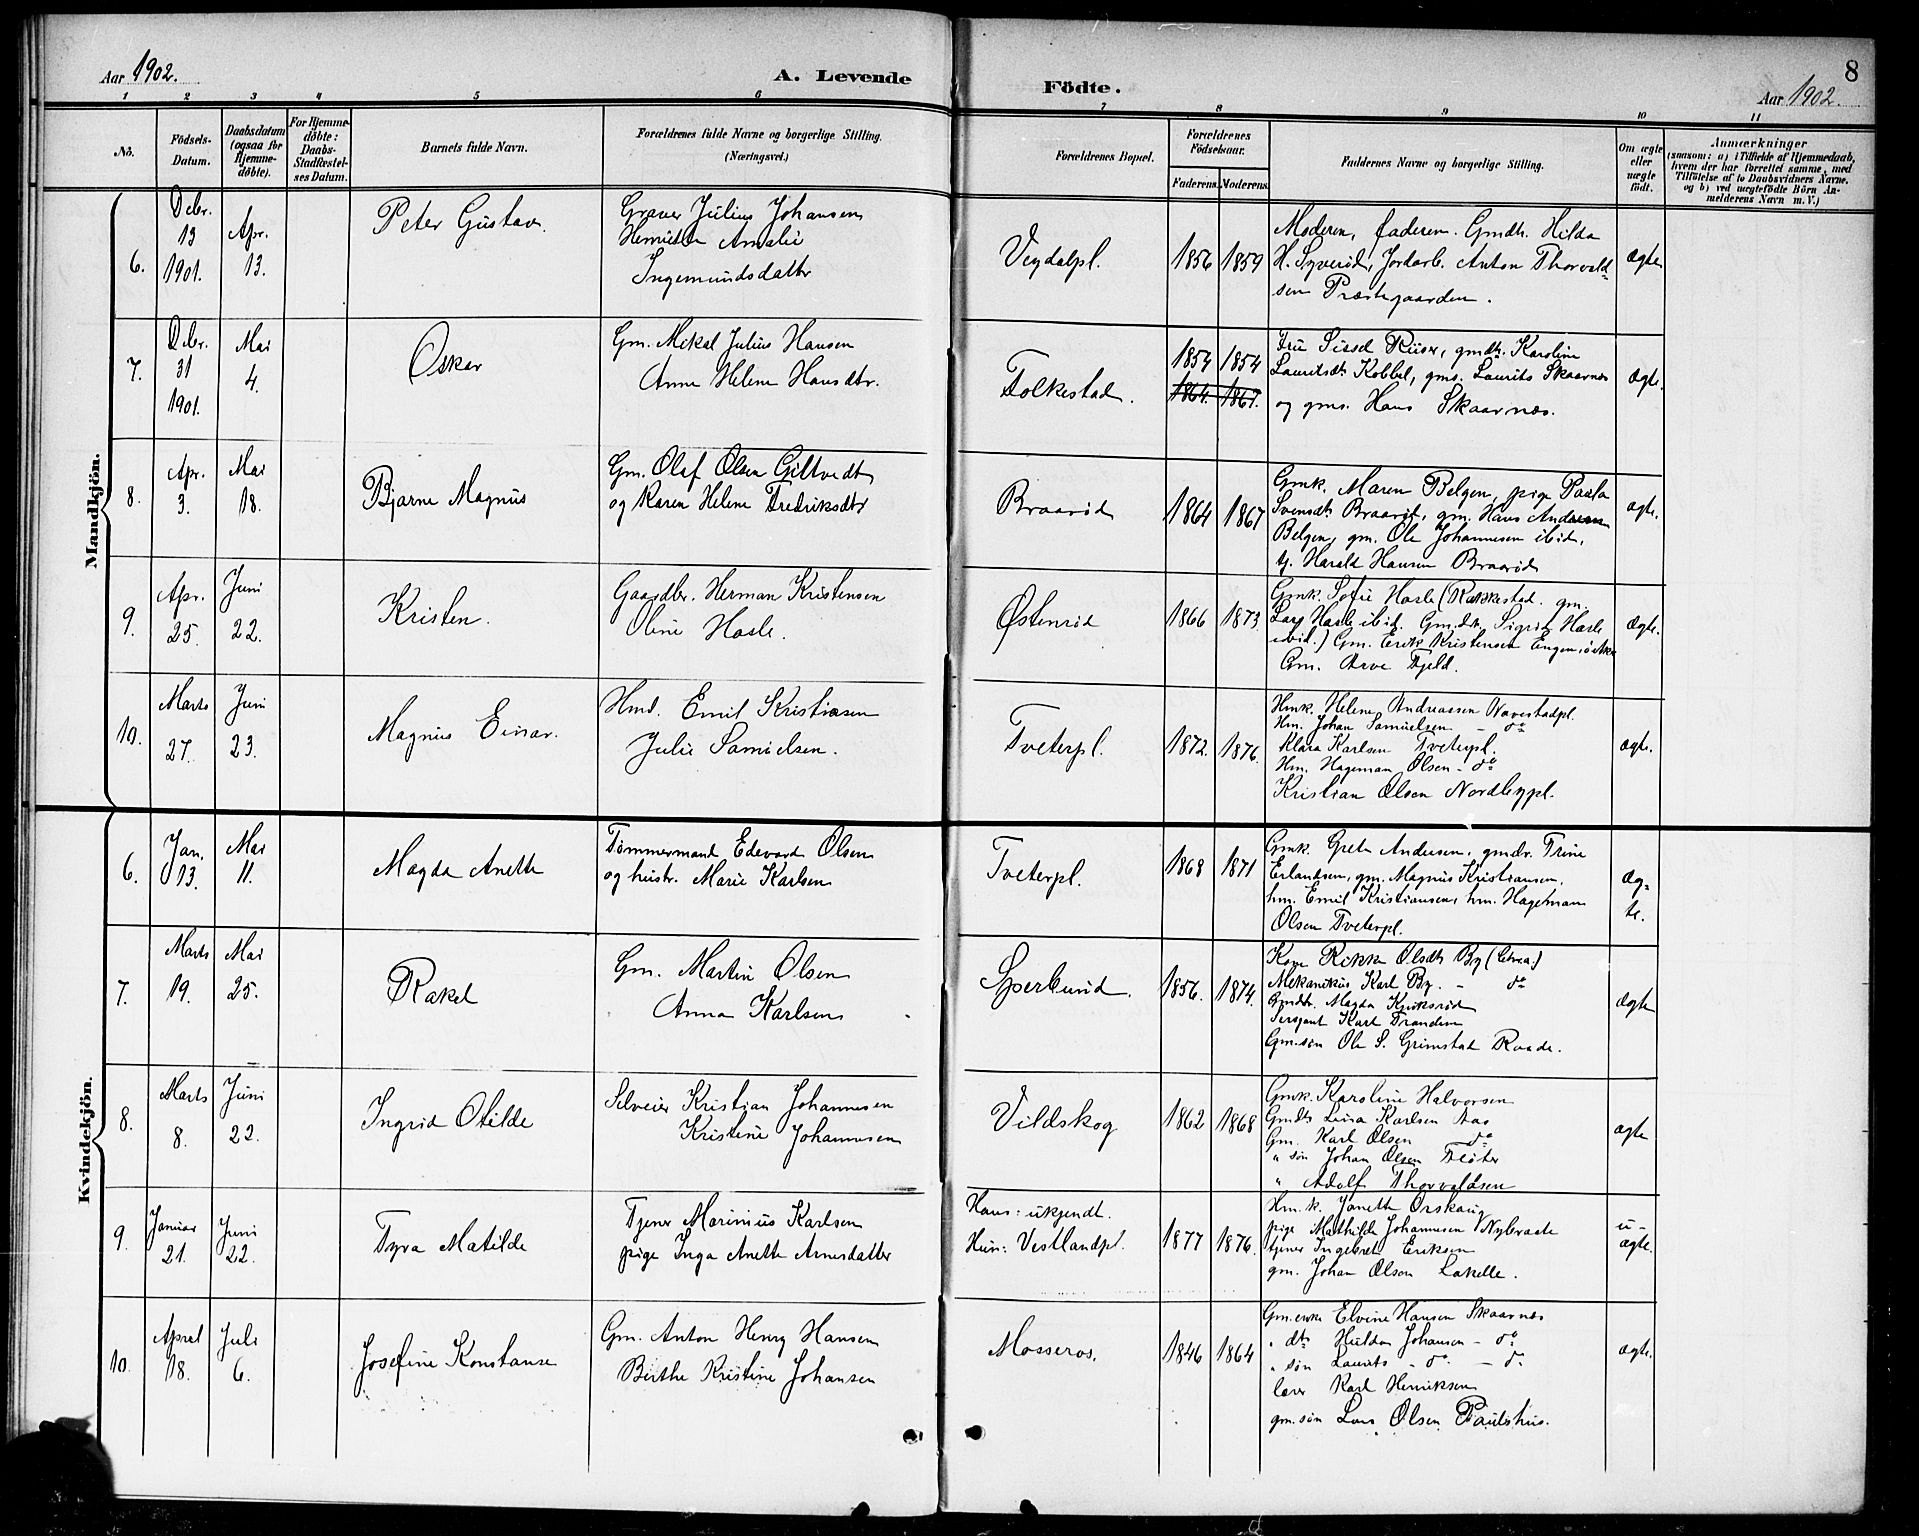 Aar 1902.
A. Levende
Födte.
8
Aar 1902.
1 2 3 4 5 6 7 8 9 10 11
Nô.
Födsels-Datum.
Daabsdatum (ogsaa for Hjemmedöbte).
For Hjemmedöbte: Daabs-Stadfæstelses Datum.
Barnets fulde Navn.
Forældrenes fulde Navne og borgerlige Stilling.
(Næringsvei.)
Forældrenes Bopæl.
Forældrenes Födselsaar.
Faderens. Moderens.
Faddernes Navne og borgerlige Stilling.
Om ægte eller uægte födt.
Anmærkninger
(saasom: a) i Tilfælde af Hjemmedaab,
hvem der har forrettet samme, med
Tilföielse af to Daabsvidners Navne.
og b) ved uægtefödte Börn An-
melderens Navn m. V.)
Mandkjön.
6.
Debr. 13 1901.
Apr. 13.
Peter Gustav.
Graver Julius Johansen
Henriette Amalie
Ingemundsdatter
Vegdalpl.
1856 1859
Moderen, faderen. Gmdtr. Hilda
H. Syverød, Jordarb. Anton Thorvald-
sen Præstegaarden.
ægte
7.
Debr. 31 1901.
Mai 4.
Oskar
Gm. Mekal Julius Hansen
Anne Helene Hansdtr.
Folkestad.
1854 1854
1864. 1867.
Fru Sissel Riiser, gmdtr. Karoline
Lauritsdtr Kobbel, gms. Laurits Skaarnes
og gms. Hans Skaarnæs.
ægte.
8.
Apr. 3.
Mai 18.
Bjarne Magnus
Gm. Olaf Olsen Giltvedt
og Karen Helene Fredriksdtr
Braarød
1864 1867
Gmk. Maren Belgen, pige Paula
Svensdtr Braarød, gm. Hans Andersen
Belgen, gm. Ole Johannesen ibid,
tj. Harald Hansen Braarød
ægte.
9.
Apr. 25.
Juni 22.
Kristen.
Gaardbr. Herman Kristensen
Oline Hasle.
Østenrød
1866 1873.
Gmk. Sofie Hasle (Rakkestad. gm.
Lars Hasle ibid. Gm.dtr. Sigrid Hasle
ibid.) Gm. Erik Kristensen Engen
Gm. Arve Fjeld.
Ægte.
10.
Marts 27.
Juni 23.
Magnus Einar.
Hmd. Emil Kristiasen
Julie Samuelsen.
Tveterpl.
1872. 1876.
Hmk. Helene Andreassen Navestadpl.
Hm. Johan Samuelsen - do
Klara Karlsen Tveterpl.
Hm. Hageman Olsen - do
Kristian Olsen Nordbypl.
ægte.
Kvindekjön.
6.
Jan. 13.
Mai 11.
Magda Anette
Tømmermand Edevard Olsen
og hustr. Marie Karlsen
Tveterpl.
1868 1871
Gmk. Grete Andersen, gmdr. Trine
Erlandsen, gm. Magnus Kristiansen,
hm. Emil Kristiansen, hm. Hageman
Olsen Tveterpl.
Æg-
te.
7.
Marts 19.
Mai 25.
Rakel
Gm. Martin Olsen
Anna Karlsen
Sperlund.
1856. 1874.
Kone Rikke Olsdtr By
Mekanikus Karl By. - do
Gmdtr. Magda Kjuksrød
Sersjant Karl Tranden
Gm.søn Ole S. Grimstad Raade.
ægte
8.
Marts 8.
Juni 22.
Ingrid Otilde
Selveier Kristian Johannesen
Kristine Johannesen
Vildskog
1862 1868
Gmk. Karoline Halvorsen
Gmdtr Lina Karlsen Aas
Gm. Karl Olsen do
" søn Johan Olsen Fløter
" Adolf Thorvaldsen
ægte
9.
Januar 21.
Juni 22.
Tyra Matilde
Tjener Marinius Karlsen
pige Inga Anette Arnesdatter
Hans: ukjendt.
Hun: Vestlandpl.
1877 1876.
Hm. k. Janette Orskaug
pige Mathilde Johannesen Nybraate
tjener Ingebret Eriksen
gm. Johan Olsen Lakelle.
u-
ægte.
10.
April 18.
Juli 6.
Josefine Konstanse
Gm. Anton Henry Hansen
Birthe Kristine Johansen
Mosseros.
1846 1864
Gm.enke Elvine Hansen Skaarnæs
" dtr Hulda Johansen - do
" søn Laurits - do - do
lærer Karl Henriksen
gm.søn Lars Olsen Paulshus.
ægte.